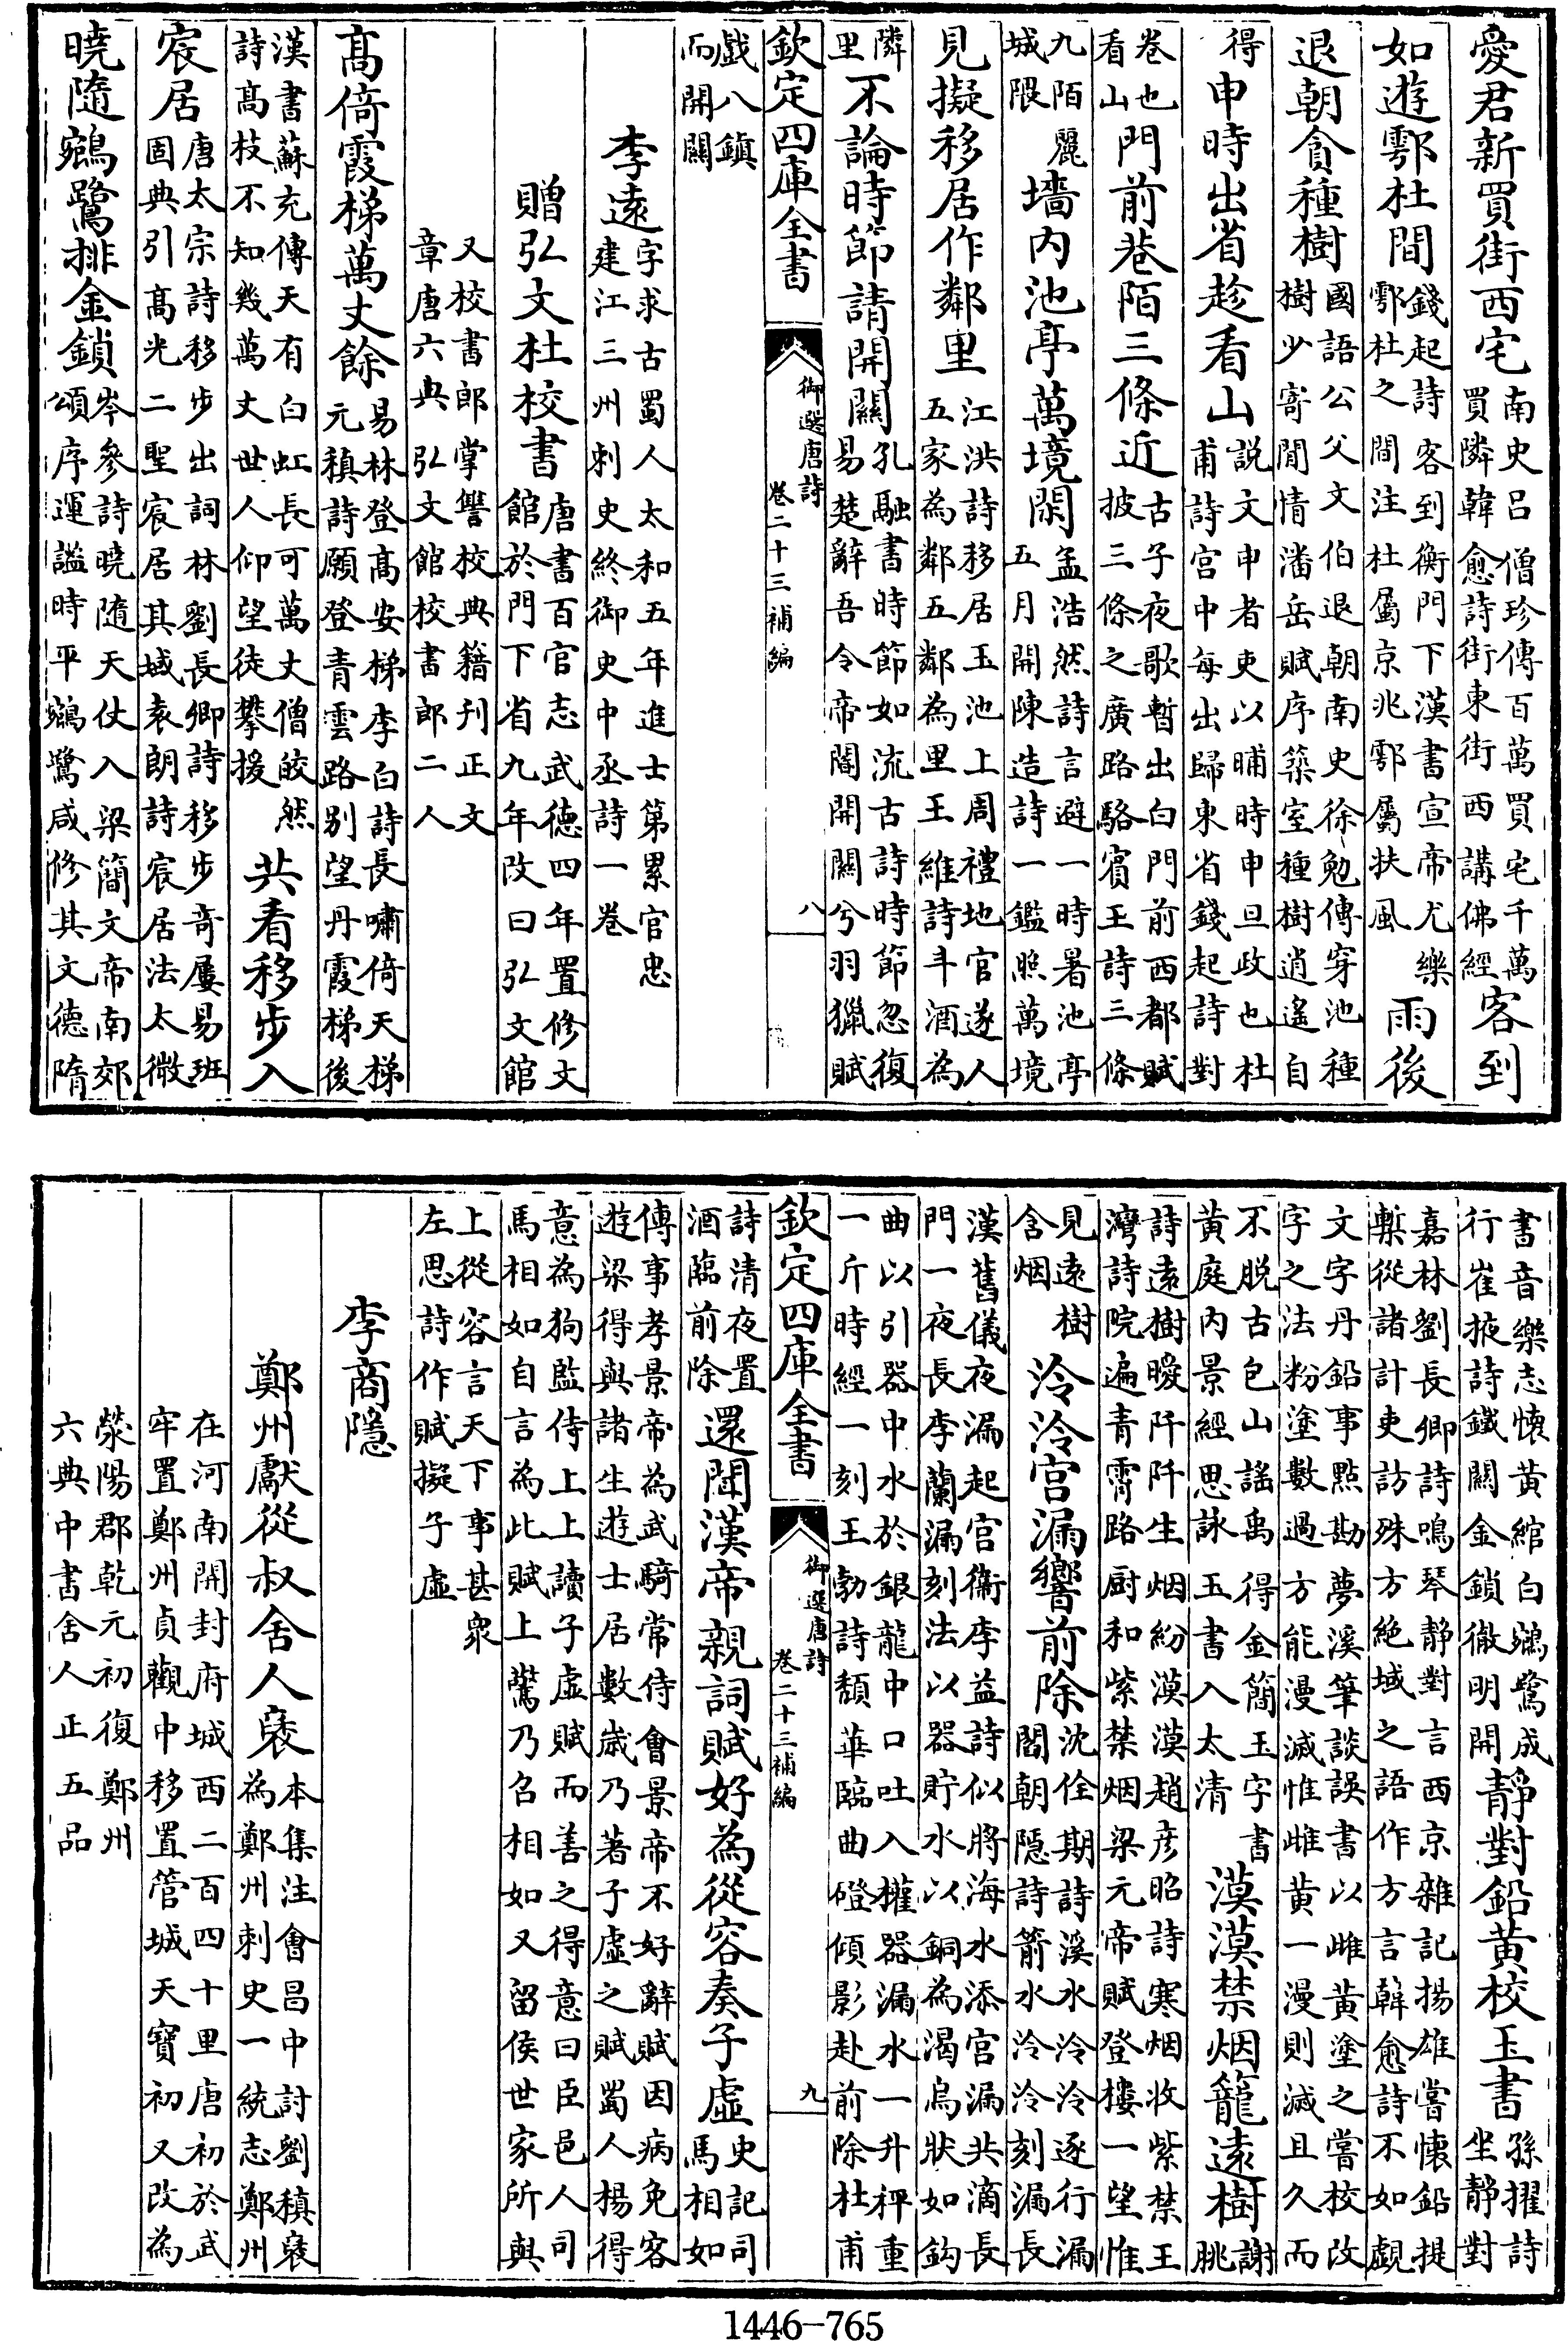 愛君新買街西宅南史呂僧珍傳百萬買宅千萬買隣韓愈詩街東街西講佛經客到
如遊鄠杜間錢起詩客到衡門下漢書宣帝尤樂鄠杜之間注杜屬京兆鄠屬扶風雨後
退朝貪種樹國語公父文伯退朝南史徐勉傳穿池種樹少寄閒情潘岳賦序築室種樹逍遙自
得申時出省趁看山説文申者吏以晡時申旦政也杜甫詩宫中每出歸東省錢起詩對
卷也看山門前巷陌三條近古子夜歌暫出白門前西都賦披三條之廣路駱賓王詩三條
九陌麗城隈墻内池亭萬境閑孟浩然詩言避一時暑池亭五月開陳造詩一鑑照萬境
見擬移居作鄰里江洪詩移居玉池上周禮地官遂人五家為鄰五鄰為里王維詩斗酒為
隣里不論時節請開關孔融書時節如流古詩時節忽復易楚辭吾令帝閽開關兮羽獵賦
欽定四庫全書 御選唐詩 卷二十三補編 八
戯八鎮而開關
李遠字求古蜀人太和五年進士第累官忠建江三州刺史終御史中丞詩一卷
贈弘文杜校書唐書百官志武德四年置修文館於門下省九年改曰弘文館
又校書郎掌讐校典籍刊正文章唐六典弘文館校書郎二人
髙倚霞梯萬丈餘易林登髙安梯李白詩長嘯倚天梯元稹詩願登青雲路别望丹霞梯後
漢書蘇充傳天有白虹長可萬丈僧皎然詩髙枝不知幾萬丈世人仰望徒攀援共看移步入
宸居唐太宗詩移步出詞林劉長卿詩移步竒屢易班固典引髙光二聖宸居其域袁朗詩宸居法太微
曉隨鵷鷺排金鎖岑參詩曉隨天仗入梁簡文帝南郊頌序運謐時平鵷鷺咸修其文德隋
書音樂志懷黄綰白鵷鷺成行崔掖詩鐵關金鎖徹明開靜對鉛黄校玉書孫擢詩坐靜對
嘉林劉長卿詩鳴琴靜對言西京雜記揚雄嘗懷鉛提槧從諸計吏訪殊方絶域之語作方言韓愈詩不如覷
文字丹鉛事點勘夢溪筆談誤書以雌黄塗之嘗校改字之法粉塗數過方能漫滅惟雌黄一漫則滅且久而
不脱古包山謡禹得金簡玉字書黄庭内景經思詠玉書入太清漠漠禁烟籠遠樹謝朓
詩遠樹曖阡阡生烟紛漠漠趙彦昭詩寒烟收紫禁王灣詩院遍青霄路厨和紫禁烟梁元帝賦登樓一望惟
見遠樹含烟泠泠宫漏響前除沈佺期詩溪水泠泠逐行漏閻朝隱詩箭水泠泠刻漏長
漢舊儀夜漏起宫衞李益詩似將海水添宫漏共滴長門一夜長李蘭漏刻法以器貯水以銅為渴烏狀如鈎
曲以引器中水於銀龍中口吐入權器漏水一升秤重一斤時經一刻王勃詩頽華臨曲磴傾影赴前除杜甫
欽定四庫全書 御選唐詩 卷二十三補編 九
詩清夜置酒臨前除還聞漢帝親詞賦好為從容奏子虛史記司馬相如
傳事孝景帝為武騎常侍會景帝不好辭賦因病免客遊梁得與諸生遊士居數歲乃著子虛之賦蜀人楊得
意為狗監侍上上讀子虛賦而善之得意曰臣邑人司馬相如自言為此賦上驚乃召相如又留侯世家所與
上從容言天下事甚衆左思詩作賦擬子虛
李商隱
鄭州獻從叔舍人褎本集注會昌中討劉稹褎為鄭州刺史一統志鄭州
在河南開封府城西二百四十里唐初於武牢置鄭州貞觀中移置管城天寶初又改為
滎陽郡乾元初復鄭州六典中書舍人正五品
1446-765